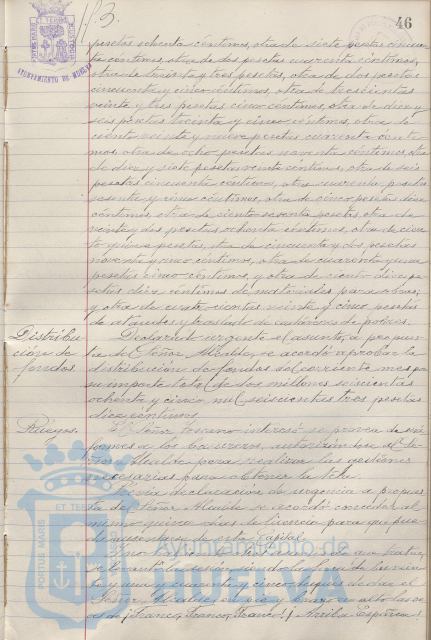 46
AYUNTAMIENTO DE HUELVA
pesetas ochenta céntimos, otra de siete pesetas cincuen
ta céntimos, otra de dos pesetas cuarenta céntimos,
otra de treinta y tres pesetas, otra de dos pesetas
cincuenta y cinco céntimos, otra de trescientas
veinte y tres pesetas cinco céntimos, otra de diez y
seis pesetas treinta y cinco céntimos, otra de
ciento veinte y nueve pesetas cuarenta cénti
mos, otra de ocho pesetas noventa céntimos, otra
de diez y siete pesetas veinte céntimos, otra de seis
pesetas cincuenta céntimos, otra cuarenta pesetas
sesenta y cinco céntimos, otra de cinco pesetas diez
céntimos, otra de ciento sesenta pesetas, otra de
veinte y dos pesetas ochenta céntimos, otra de cien
to quince pesetas, otra de cincuenta y dos pesetas
noventa y cinco céntimos, otra de cuarenta y una
pesetas cinco céntimos, y otra de ciento diez pe
setas diez céntimos de materiales para obras;
y otra de cuatrocientas veinte y cinco pesetas
de ataudes y traslado de cadáveres de pobres.
Distribu
ción de
fondos.
Declarado urgente el asunto, a propues
ta del Señor Alcalde, se acordó aprobar la
distribución de fondos del corriente mes por
su importe total de dos millones seiscientas
ochenta y cinco mil seiscientas tres pesetas
diez céntimos.
Ruegos.
El Señor Lozano interesó se provea de uni
formes a los basureros, autorizándose al Se
ñor Alcalde para realizar las gestiones
necesarias para obtener la tela.
Previa declaración de urgencia a propues
ta del Señor Alcalde se acordó conceder al
mismo quince días de licencia para que pue
da ausentarse de esta Capital.
Y no habiendo más asuntos de que tratar,
se levantó la sesión siendo la hora de las vein
te y una y cuarenta y cinco después de dar el
Señor Alcalde en pie y brazo en alto las vo
ces de ¡Franco, Franco, Franco! ¡Arriba España!
PORTUS MARIS
ET TERRAE
Ayuntamiento de
Huelva